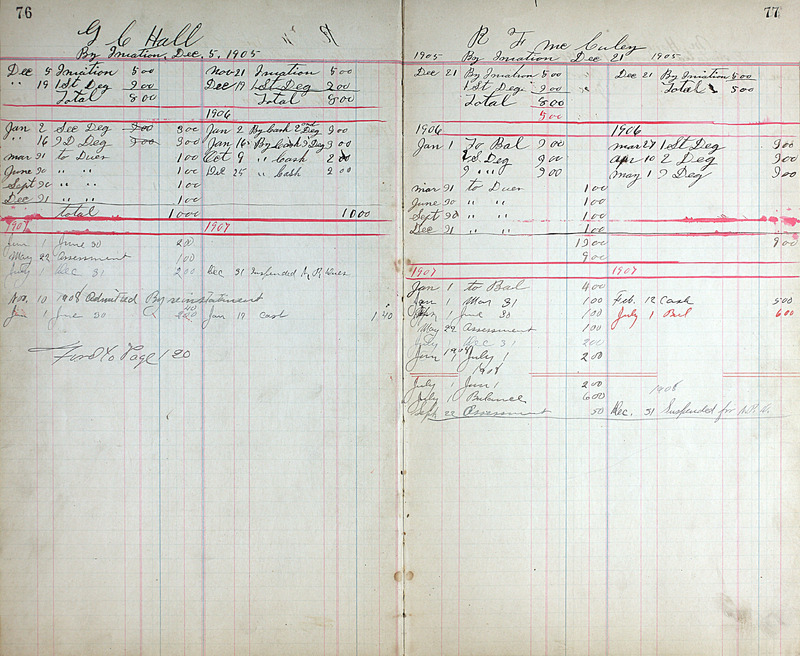 76
G C Hall
By Iniation, Dec. 5, 1905
Dec 5 Iniation 500 Nov 21 Iniation 500
" 19 1st Deg 300 Dec 19 1st Deg 300
Total 800 Total 800
1906
Jan 2 Sec Deg 300 300 Jan 2 By Cash 2 Deg 300
" 16 3D Deg 300 300 Jan 16 By Cash 3 Deg 300
mar 31 to Dues 100 Oct 9 " Cash 200
June 30 " " 100 Dec 25 " Cash 200
Sept 30 " " 100
Dec 31 " " 100
total 1000 1000
1907 1907
Jan 1 June 30 200
May 22 Assessment 100
July 1 Dec 31 200 Dec 31 Suspended Dues
Nov. 10 1908 Admitted By reinstatment
Jan 1 June 30 Jan 19 Cash 140
Ford to Page 120
77
R F McCuley
1905 By Iniation Dec 21 1905
Dec 21 By Iniation 500 Dec 21 By Iniation 500
1st Deg 300 Total 500
Total 800
500
1906 1906
Jan 1 To Bal 300 mar 27 1st Deg 300
2 Deg 300 apr 10 2 Deg 300
3 " " 300 may 1 3 Deg 300
mar 31 to Dues 100
June 30 " " 100
Sept 30 " " 100
Dec 31 " " 100
1300 900
900
1907 1907
Jan 1 to Bal 400
Jan 1 Mar 31 100 Feb. 12 Cash 500
Apr 1 June 30 100 July 1 Bal 600
May 22 Assessment 100
July 1 Dec 31 200
Jan 1908 July 1 200
1908
July 1 Jan 1 200 1908
July 1 Balance 600
Sept. 22 Assessment 50 Dec. 31 Suspended for